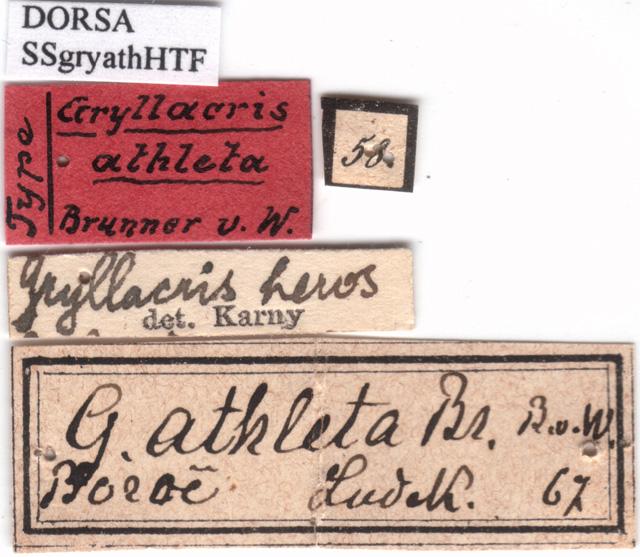 DORSA
SSgryathHTF
Type
Gryllacris
athleta
Brunner v. W.
58.
Gryllacris heros
det. Karny
G. athleta Br. B.v.W.
67